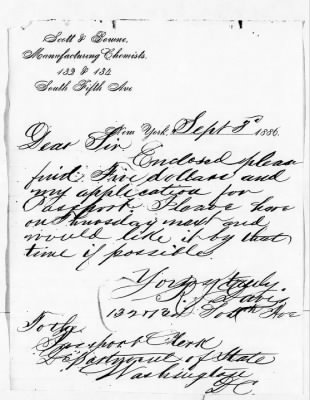 Scott & Bowne,
Manufacturing Chemists.
132 & 134
South Fifth Ave
New York, Sept 3d 1886.
Dear Sir
Enclosed please
find Five dollars and
my application for
Passport. I leave here
on Thursday next and
would like it by that
time if possible
Yours truly.
132 & 134 South 5th Ave
To the
Passport Clerk
Department of State
Washington
D.C.